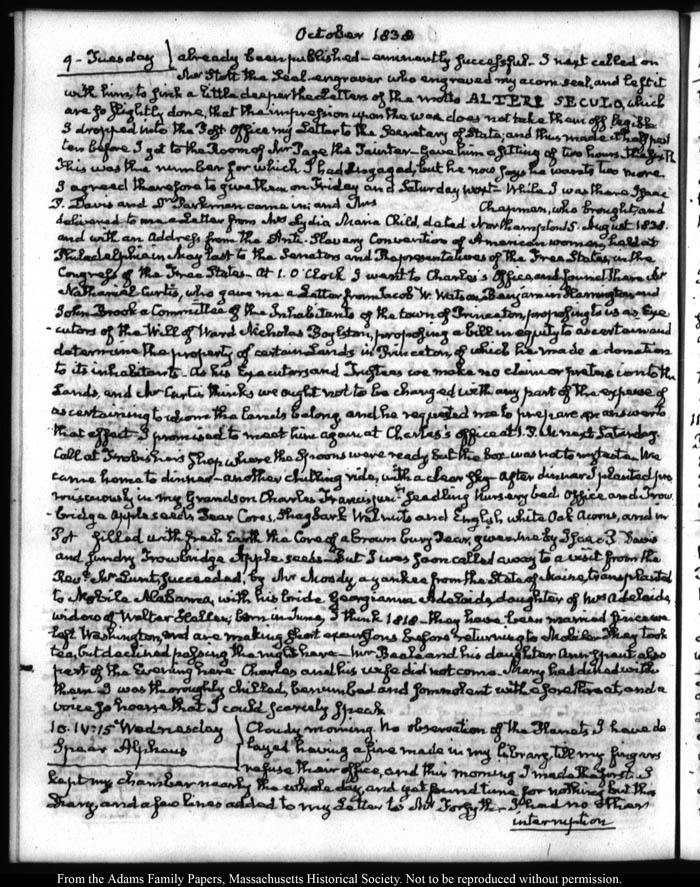 October 1838
9. Tuesday } already been published – eminently successful. I next called on
Mr Stott the Seal-engraver who engraved my acorn seal, and left it
with him, to sink a little deeper the Letters of the motto ALTERI SECULO, which
are so slightly done, that the impression upon the wax does not take them off legible.
I dropped into the Post Office my Letter to the Secretary of State, and thus made it half past
ten before I got to the Room of Mr Page the Painter – Gave him a sitting of two hours the sixth
This was the number for which I had engaged, but he now says he wants two more.
I agreed therefore to give them on Friday and Saturday next – While I was there Isaac
P. Davis and Dr Parkman came in; and Mrs Chapman, who brought and
delivered to me a Letter from Mrs Lydia Maria Child, dated Northampton 5. August 1838.
and with an Address from the Anti-Slavery Convention of American women, held at
Philadelphia in May last to the Senators and Representatives of the Free States, in the
Congress of the Free States – At 1. O'Clock I went to Charles's Office, and found there Mr
Nathaniel Curtis, who gave me a Letter from Jacob W. Watson, Benjamin Harrington and
John Brooks a Committee of the Inhabitants of the town of Princeton, proposing to us as Exe-
-cutors of the Will of Ward Nicholas Boylston, proposing a bill in equity to ascertain and
determine the property of certain Lands in Princeton, of which he made a donation
to its inhabitants – As his Executors and Trustees we make no claim or pretension to the
Lands, and Mr Curtis thinks we ought not to be charged with any part of the expense of
ascertaining to whom the lands belong, and he requested me to prepare an answer to
that effect – I promised to meet him again at Charles's office at 1. P.M. next Saturday.
Call at Frobisher's shop where the Spoons were ready but the box was not to my taste. We
came home to dinner – another chilling ride, with a clear sky – After dinner I planted pro
miscuously in my Grandson Charles Francis jun.rs Seedling Nursery bed Office and Trow
-bridge Apple seeds, Pear Cores, Shagbark Walnuts and English white Oak Acorns, and in
Pot filled with fresh Earth the Core of a brown bury Pear, given me by Isaac P. Davis
and sundry Trowbridge Apple seeds – But I was soon called away to a visit from the
Revd Mr Lunt, succeeded, by Mr Moody a yankee from the State of Maine, transplanted
to Mobile Alabama, with his bride Georgianna Adelaide, daughter of Mrs Adelaide,
widow of Walter Hellen; born in June, I think 1818 – they have been married since we
left Washington, and are making short excursions before returning to Mobile – They took
tea, but declined passing the night here – Mr Beale and his daughter Ann spent also
part of the Evening here Charles and his wife did not come – Mary had dined with
them – I was thoroughly chilled, benumbed and somnolent with a sore throat, and a
voice so hoarse that I could scarcely speak.
10. IV:15. Wednesday } Cloudy morning. No observation of the Planets I have de
Spear Alpheus layed having a fire made in my library, till my fingers
refuse their office, and this morning I made the first. I
kept my chamber nearly the whole day, and yet found time for nothing but this
Diary, and a few lines added to my Letter to Mr Forsyth – I had no other
interruption
From the Adams Family Papers, Massachusetts Historical Society. Not to be reproduced without permission.